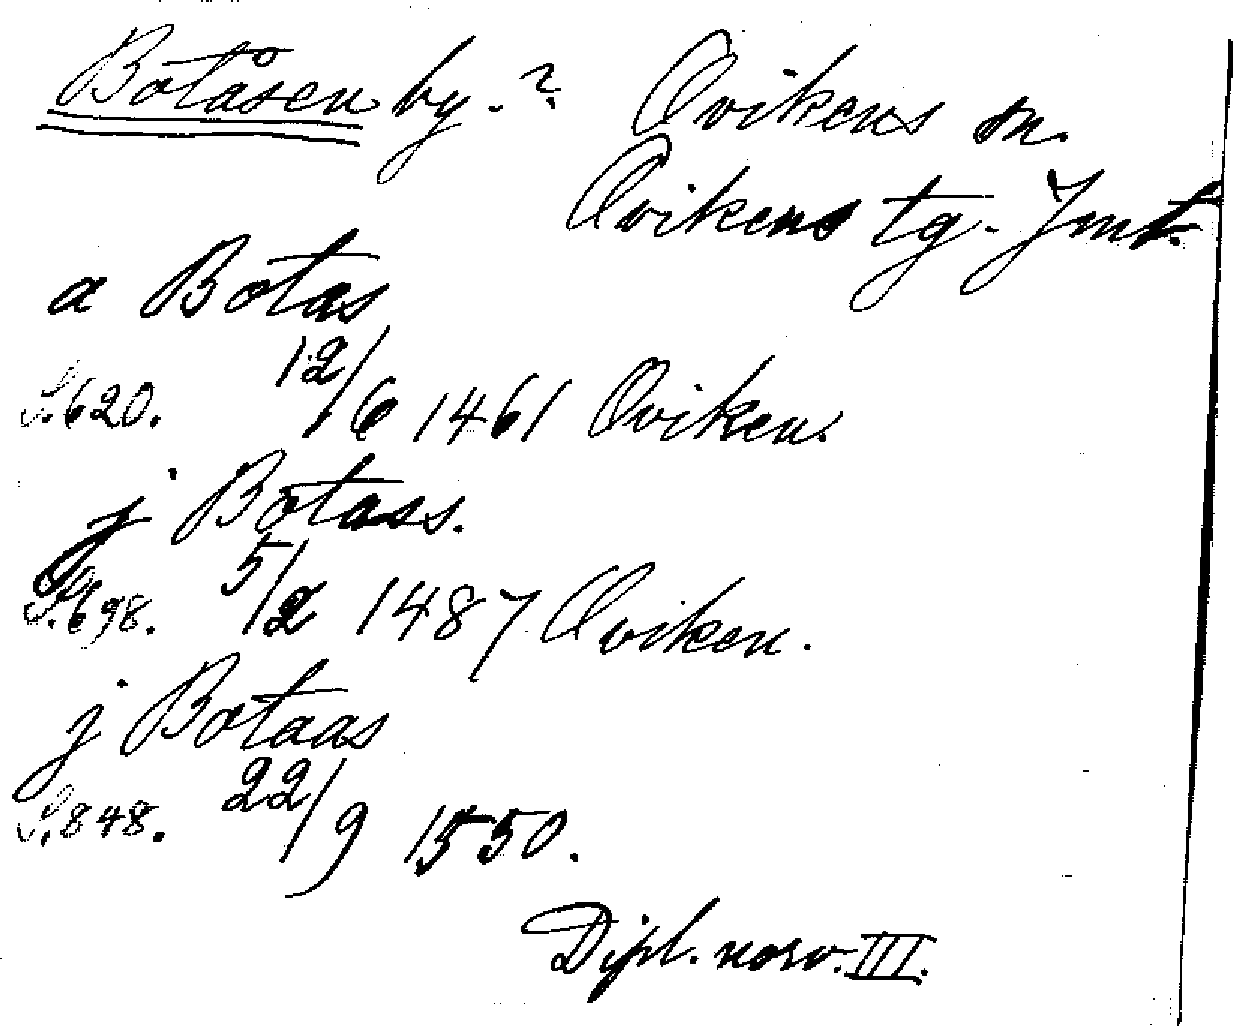 Botåsen by.? Ovikens sn.
Ovikens tg. Jmt.
a Botas
S. 620. 12/6 1461 Oviken.
j Botass.
S. 698. 5/2 1487 Oviken.
j Botaas
S. 848. 22/9 1550.
Dipl. norv. III.